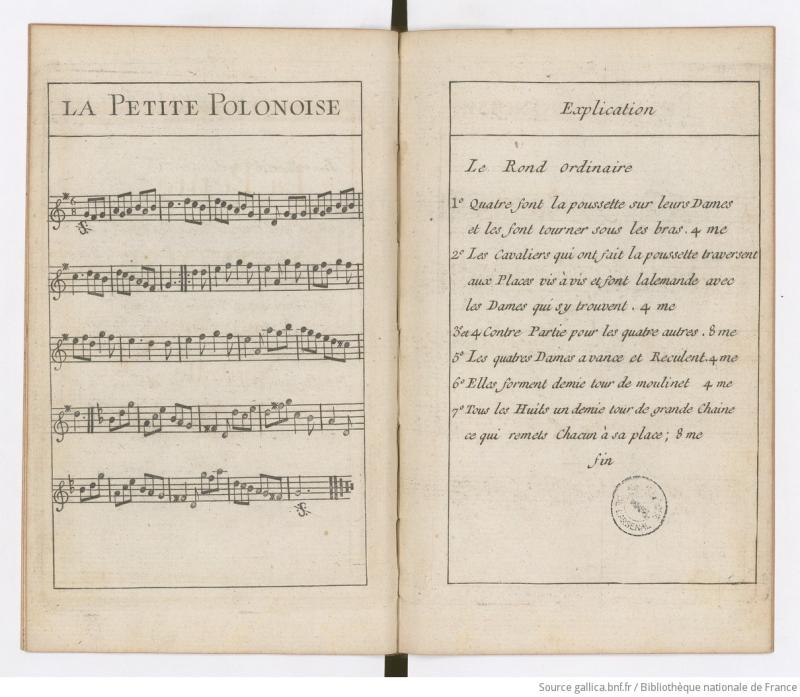 LA PETITE POLONOISE
6
8
Explication
Le Rond ordinaire
1º Quatre font la poussette sur leurs Dames
et les font tourner sous les bras. 4 me
2º Les Cavaliers qui ont fait la poussette traversent
aux Places vis à vis et font lalemande avec
les Dames qui s'y trouvent. 4 me
3 et 4 Contre Partie pour les quatre autres. 8 me
5º Les quatres Dames avance et Reculent. 4 me
6º Elles forment demie tour de moulinet 4 me
7º Tous les Huits un demie tour de grande Chaine
ce qui remets Chacun à sa place; 8 me
fin
L'ARSENAL
Source gallica.bnf.fr / Bibliothèque nationale de France